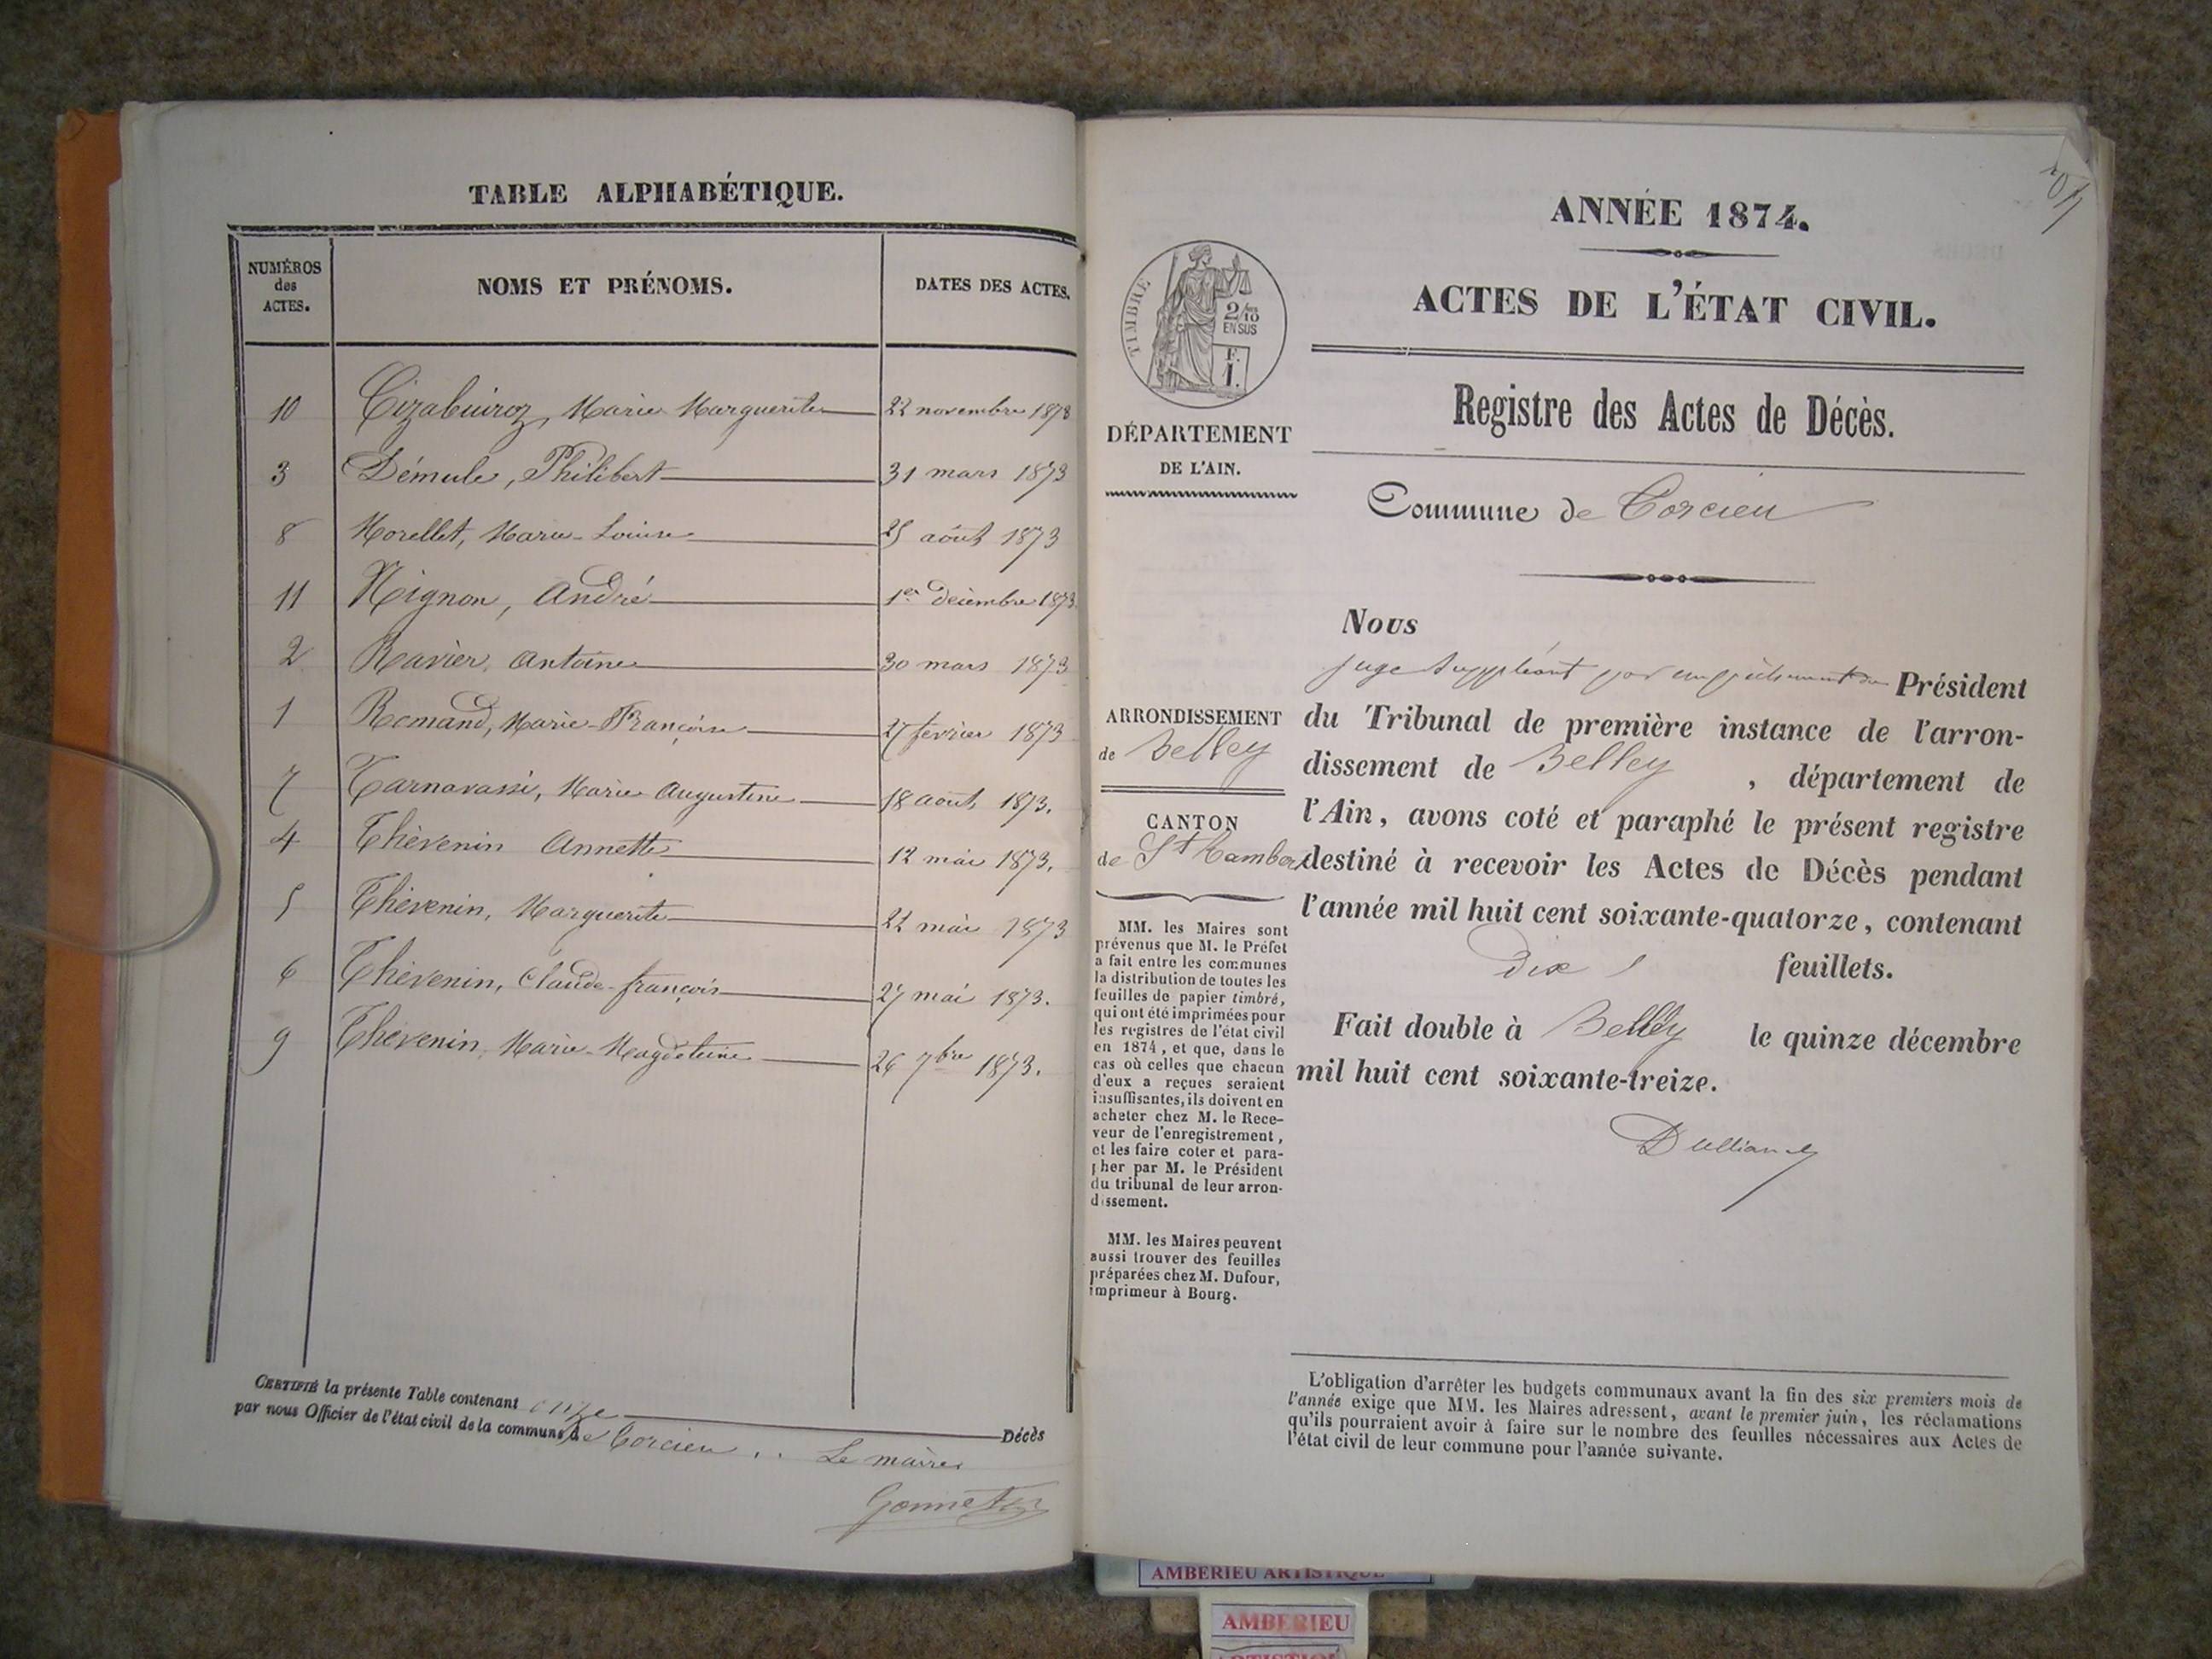 TABLE ALPHABÉTIQUE.
NUMÉROS des ACTES. NOMS ET PRÉNOMS. DATES DES ACTES.
10 Cizabuiroz, Marie Marguerite 22 novembre 1873
3 Démule, Philibert 31 mars 1873
8 Morellet, Marie-Louise 25 août 1873
11 Nignon, André 1er décembre 1873
2 Ravier, Antoine 30 mars 1873
1 Romand, Marie-Françoise 27 février 1873
7 Tarnavassi, Marie Augustine 18 août 1873.
4 Thévenin Annette 12 mai 1873.
5 Thévenin, Marguerite 22 mai 1873
6 Thévenin, Claude-françois 27 mai 1873.
9 Thévenin, Marie-Magdeleine 26 7bre 1873.
CERTIFIÉ la présente Table contenant onze Décès
par nous Officier de l'état civil de la commune de Torcieu .. Le maire
Gonnet
ANNÉE 1874.
ACTES DE L'ÉTAT CIVIL.
TIMBRE
2/10 EN SUS
F. 1.
DÉPARTEMENT
DE L'AIN.
ARRONDISSEMENT
de Belley
CANTON
de St Rambert
MM. les Maires sont
prévenus que M. le Préfet
a fait entre les communes
la distribution de toutes les
feuilles de papier timbré,
qui ont été imprimées pour
les registres de l'état civil
en 1874, et que, dans le
cas où celles que chacun
d'eux a reçues seraient
insuffisantes, ils doivent en
acheter chez M. le Rece-
veur de l'enregistrement,
et les faire coter et para-
pher par M. le Président
du tribunal de leur arron-
dissement.
MM. les Maires peuvent
aussi trouver des feuilles
préparées chez M. Dufour,
imprimeur à Bourg.
Registre des Actes de Décès.
Commune de Torcieu
Nous
juge suppléant par empêchement du Président
du Tribunal de première instance de l'arron-
dissement de Belley, département de
l'Ain, avons coté et paraphé le présent registre
destiné à recevoir les Actes de Décès pendant
l'année mil huit cent soixante-quatorze, contenant
dix feuillets.
Fait double à Belley le quinze décembre
mil huit cent soixante-treize.
L'obligation d'arrêter les budgets communaux avant la fin des six premiers mois de
l'année exige que MM. les Maires adressent, avant le premier juin, les réclamations
qu'ils pourraient avoir à faire sur le nombre des feuilles nécessaires aux Actes de
l'état civil de leur commune pour l'année suivante.
AMBERIEU ARTISTIQUE
AMBERIEU
ARTISTIQ